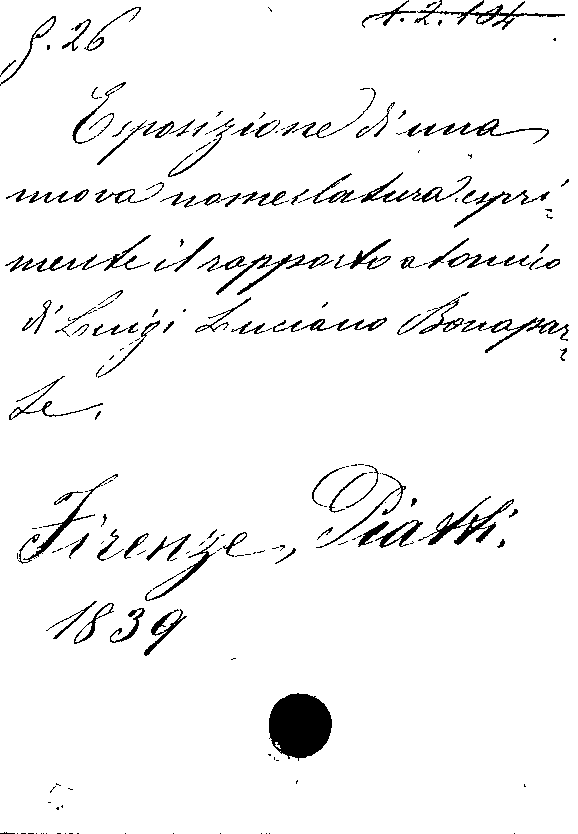 g. 26
1. 2. 104
Esposizione di una
nuova nomeclatura espri=
mente il rapporto atomico
di Luigi Luciano Bonapar=
te.
Firenze, Piatti.
1839